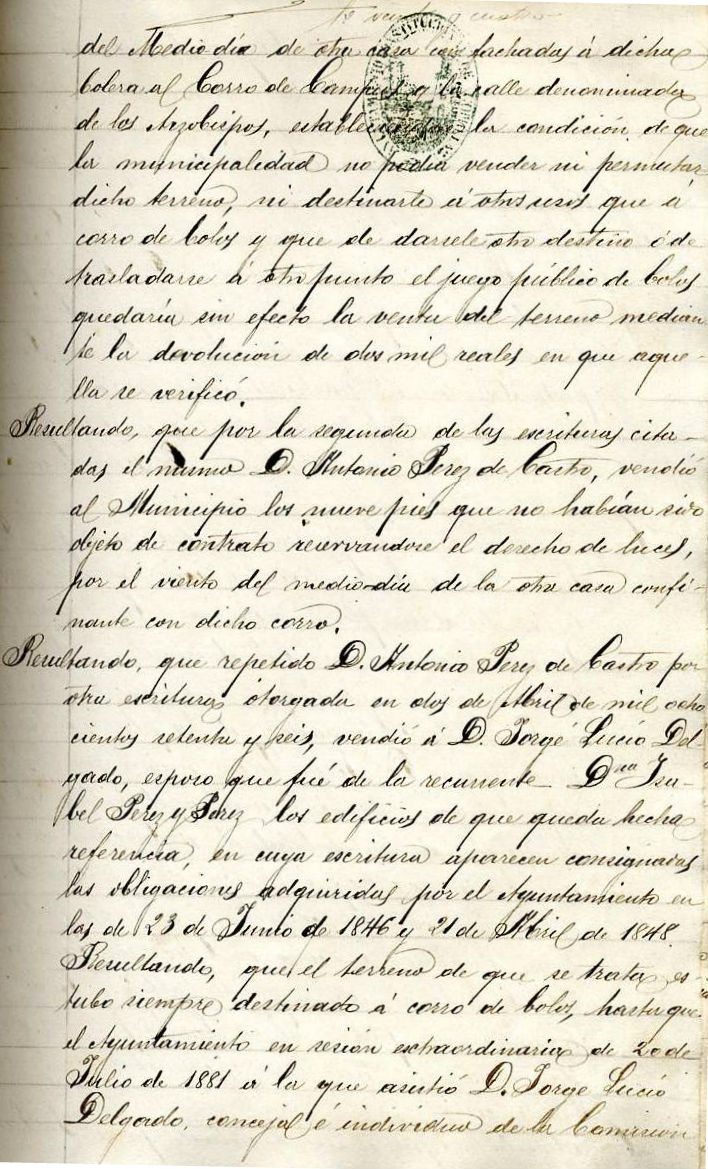 te veinte y cuatro
del Mediodia de otra casa con fachadas á dicha
bolera al Corro de Campios y la calle denominada
de los Arzobispos, la condición de que
la municipalidad no podia vender ni permutar
dicho terreno, ni destinarle á otros usos que á
corro de bolos y que de darsele otro destino ó de
trasladarse á otro punto el juego público de bolos
quedaría sin efecto la venta del terreno median
te la devolución de dos mil reales en que aque-
lla se verificó.
Resultando, que por la segunda de las escrituras cita-
das el mismo D. Antonio Perez de Castro, vendió
al Municipio los nueve pies que no habían sido
objeto de contrato reservandose el derecho de luces,
por el viento del medio-dia de la otra casa confi-
nante con dicho corro.
Resultando, que repetido D. Antonio Perez de Castro por
otra escritura otorgada en dos de Abril de mil ocho
cientos setenta y seis, vendió á D. Jorge Lucio Del-
gado, esposo que fué de la recurrente Dña Isa-
bel Perez y Perez los edificios de que queda hecha
referencia, en cuya escritura aparecen consignadas
las obligaciones adquiridas por el Ayuntamiento en
las de 23 de Junio de 1846 y 21 de Abril de 1848.
Resultando, que el terreno de que se trata es-
tubo siempre destinado á corro de bolos, hasta que
el Ayuntamiento en sesión extraordinaria de 20 de
Julio de 1881 á la que asistió D. Jorge Lucio
Delgado, concejal é individuo de la Comision